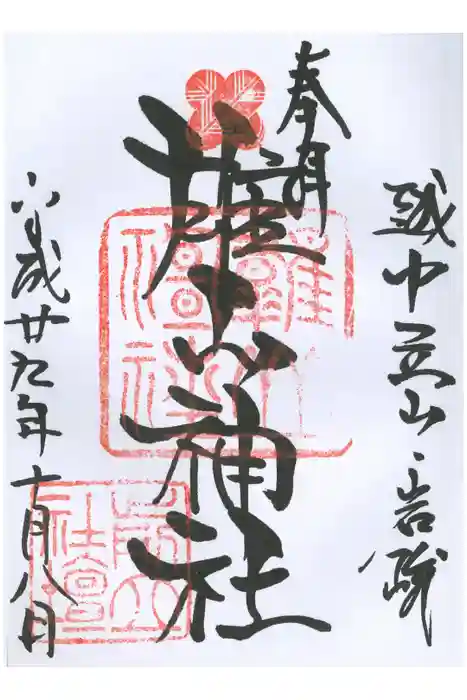 奉拝
越中立山・岩峅
雄山神社
平成廿九年十月八日
前立社壇